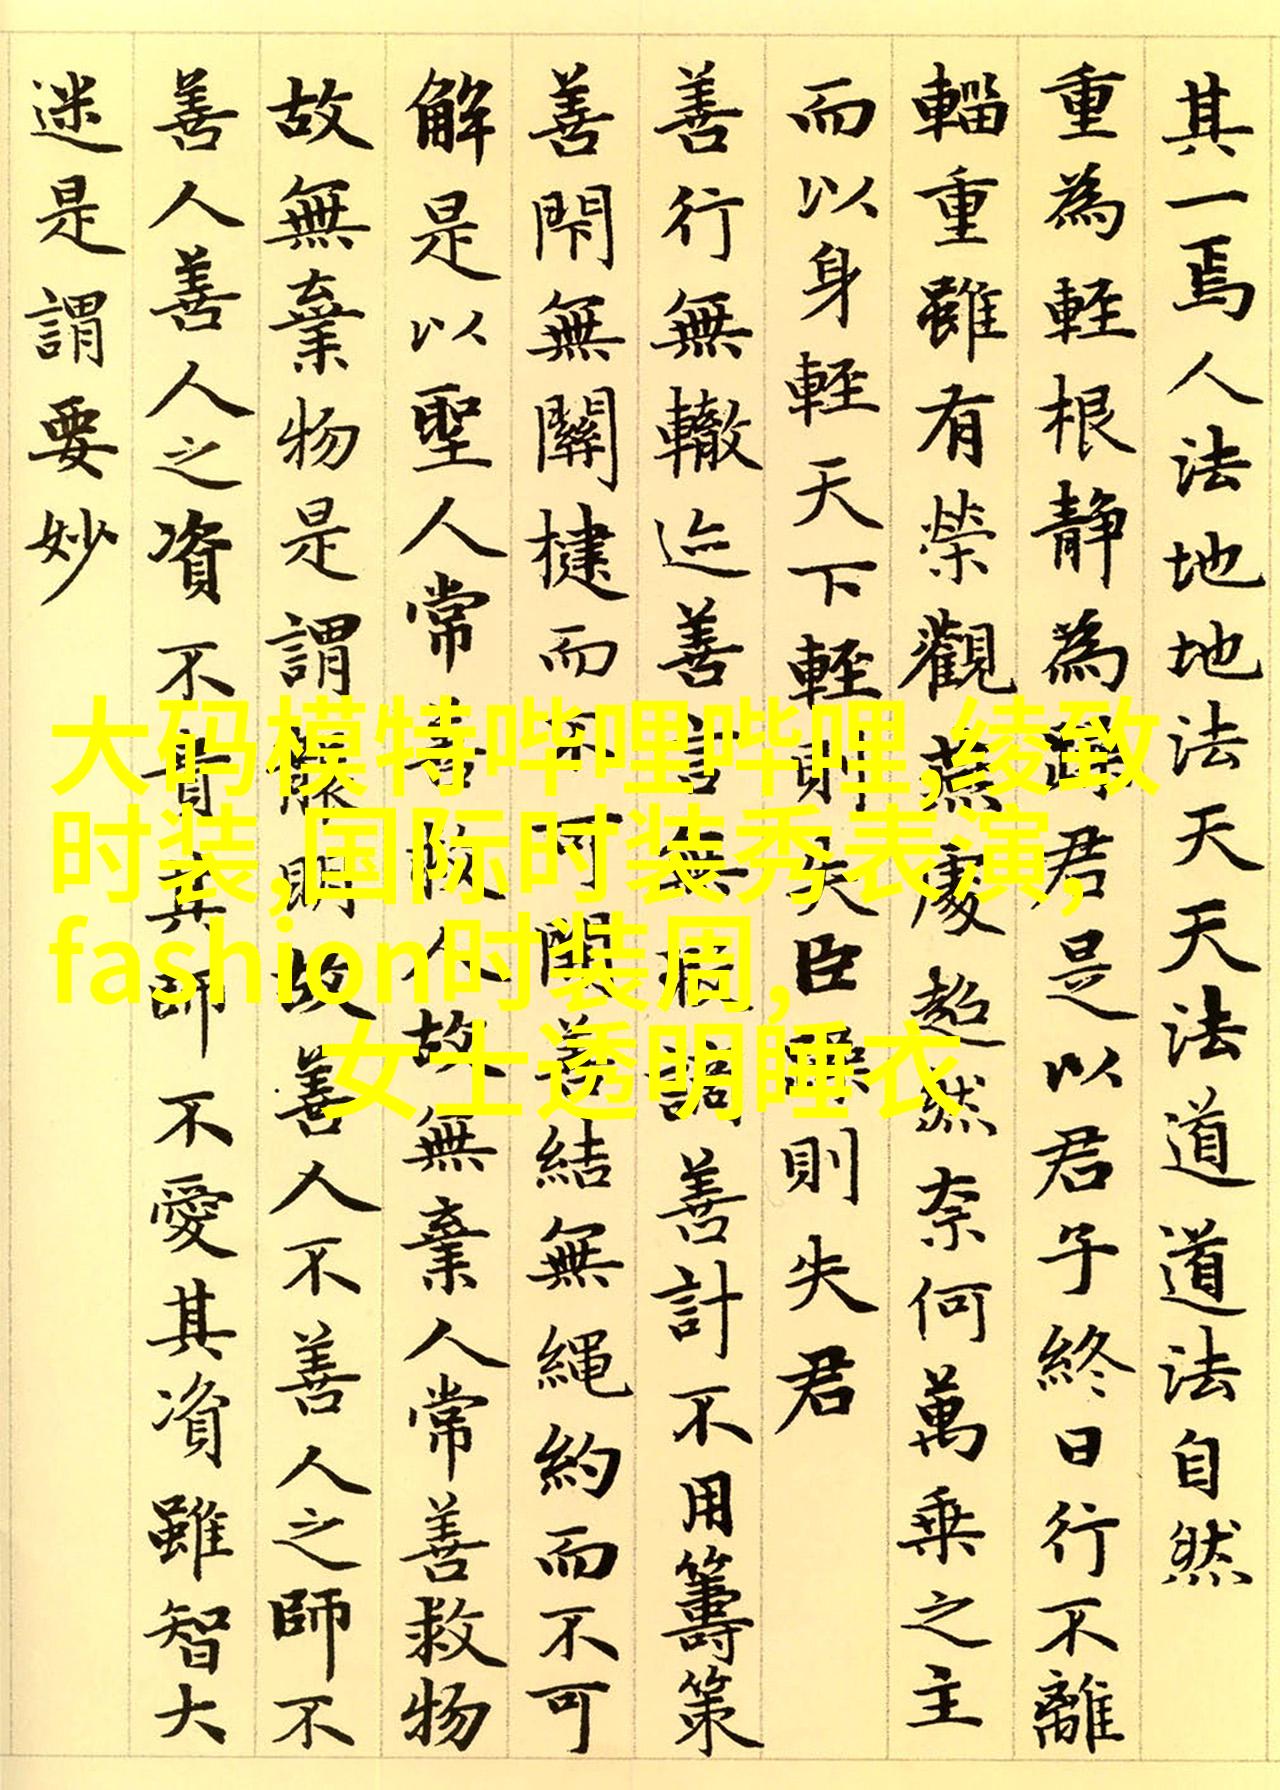 其一焉人法地地法天天法道道法自然
重為輕根靜為躁君是以君子終日行不離
輜重雖有榮觀燕處超然奈何萬乘之主
而以身輕天下輕則失臣躁則失君
善行無轍迹善言無瑕謫善計不用籌策
善閇無關楗而不可開善結無繩約而不可
解是以聖人常善救人故無棄人常善救物
故無棄物是謂襲明故善人不善人之師不
善人善人之資不貴其師不愛其資雖智大
迷是謂要妙
大码模特哔哩哔哩,绫致
时装,国际时装秀表演,
fashion时装周,
女士透明睡衣